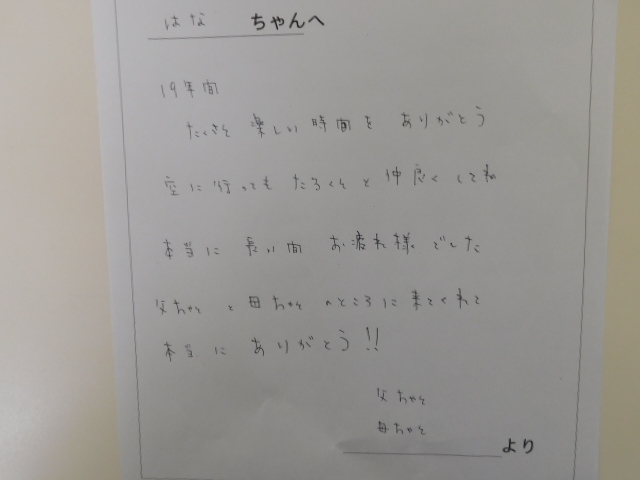 はな ちゃんへ
19年間
たくさん 楽しい 時間を ありがとう
空に行っても たろくんと 仲良く してね
本当に 長い間 お疲れ様でした
父ちゃんと 母ちゃん のところに 来てくれて
本当に ありがとう!!
父ちゃん
母ちゃん
より